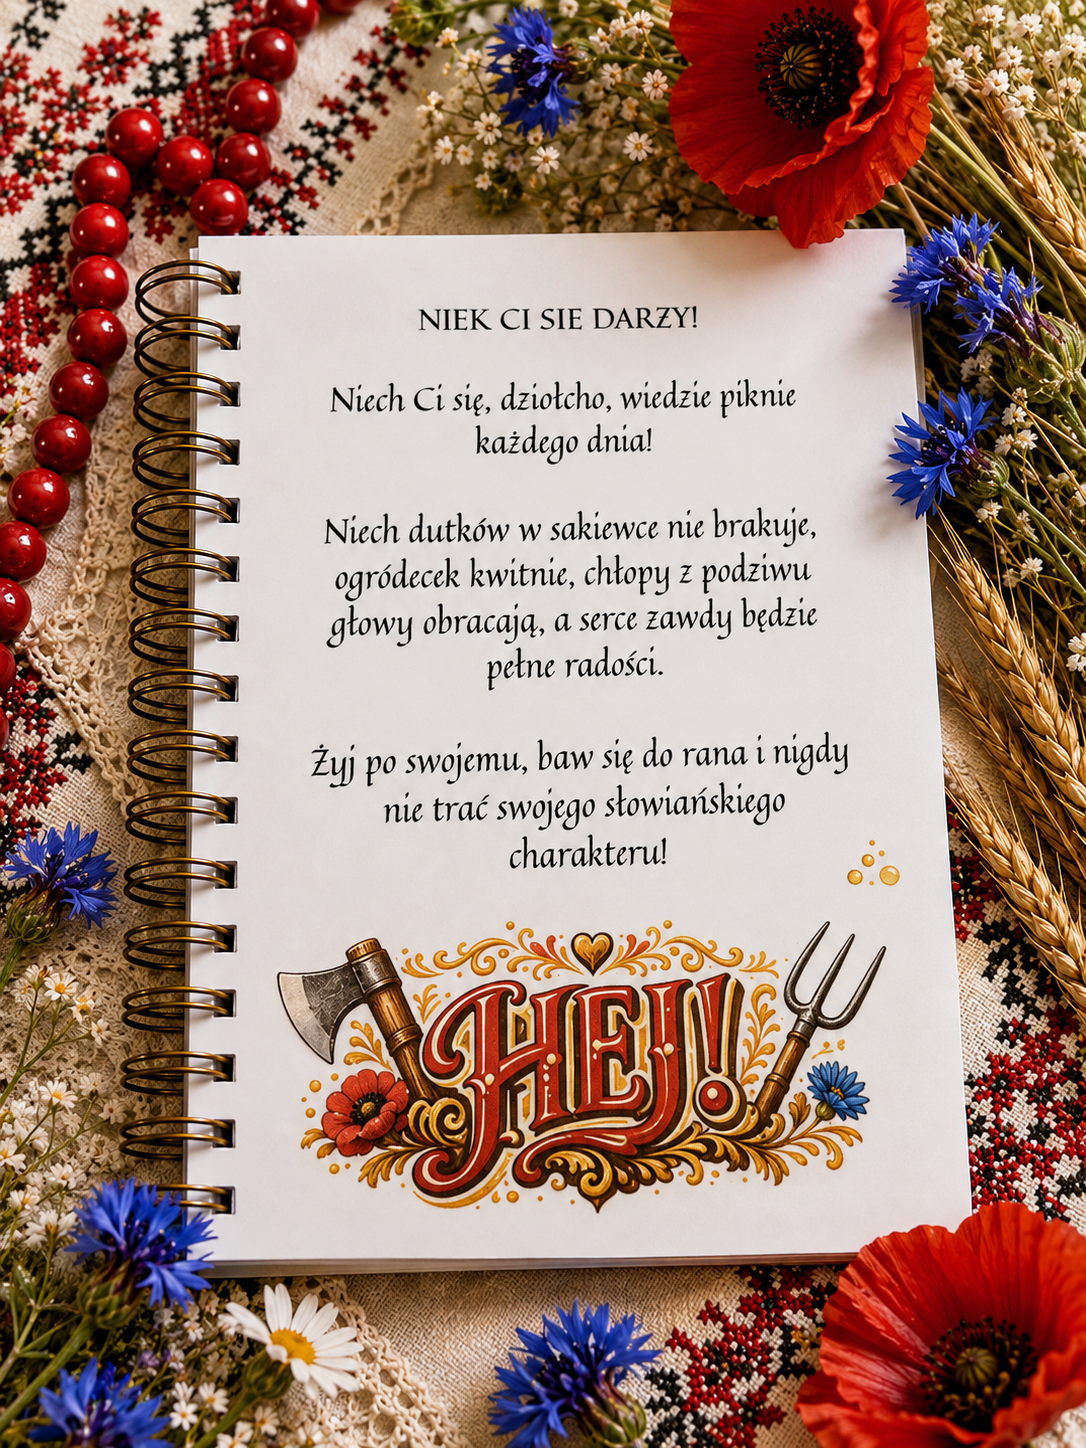 NIEK CI SIE DARZY!
Niech Ci się, dziołcho, wiedzie piknie
każdego dnia!
Niech dutków w sakiewce nie brakuje,
ogródecek kwitnie, chłopy z podziwu
głowy obracają, a serce zawdy będzie
pełne radości.
Żyj po swojemu, baw się do rana i nigdy
nie trać swojego słowiańskiego
charakteru!
HEJ!